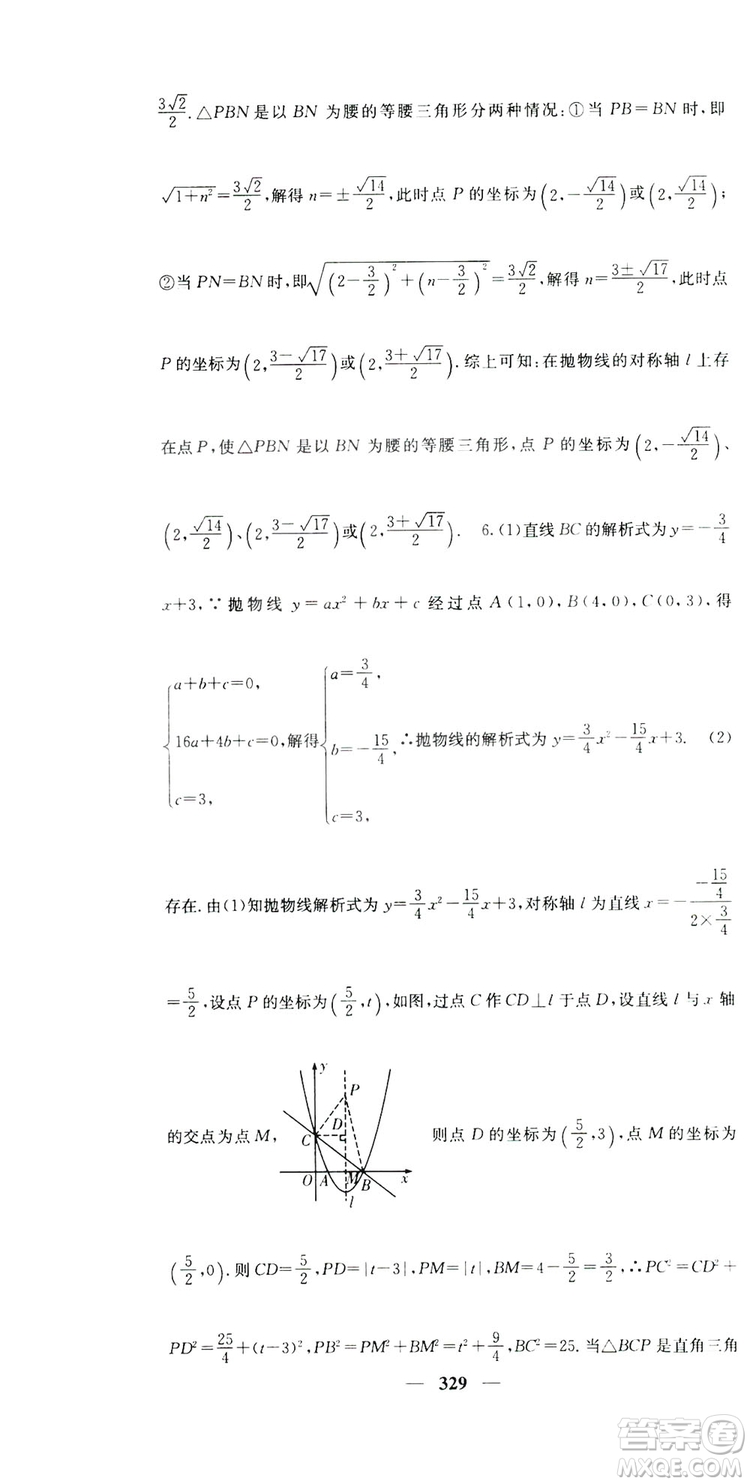 3√2/2. △PBN 是以 BN 为腰的等腰三角形分两种情况:①当 PB=BN 时,即
√(1+n²)=3√2/2,解得 n=±√14/2,此时点 P 的坐标为(2,-√14/2)或(2,√14/2);
②当 PN=BN 时,即√((2-3/2)²+(n-3/2)²)=3√2/2,解得 n=(3±√17)/2,此时点
P 的坐标为(2,(3-√17)/2)或(2,(3+√17)/2).综上可知:在抛物线的对称轴 l 上存
在点 P,使△PBN 是以 BN 为腰的等腰三角形,点 P 的坐标为(2,-√14/2)、
(2,√14/2)、(2,(3-√17)/2)或(2,(3+√17)/2). 6.(1)直线 BC 的解析式为 y=-3/4
x+3,∵抛物线 y=ax²+bx+c 经过点 A(1,0),B(4,0),C(0,3),得
{a+b+c=0, 16a+4b+c=0, c=3, 解得{a=3/4, b=-15/4, c=3, ∴抛物线的解析式为 y=3/4x²-15/4x+3. (2)
存在.由(1)知抛物线解析式为 y=3/4x²-15/4x+3,对称轴 l 为直线 x=-(-15/4)/(2×3/4)
=5/2,设点 P 的坐标为(5/2,t),如图,过点 C 作 CD⊥l 于点 D,设直线 l 与 x 轴
的交点为点 M, 则点 D 的坐标为(5/2,3),点 M 的坐标为
y
P
D
C
O A M B x
l
(5/2,0).则 CD=5/2,PD=|t-3|,PM=|t|,BM=4-5/2=3/2,∴PC²=CD²+
PD²=25/4+(t-3)²,PB²=PM²+BM²=t²+9/4,BC²=25.当△BCP 是直角三角
— 329 —
答案圈
MXQE.COM